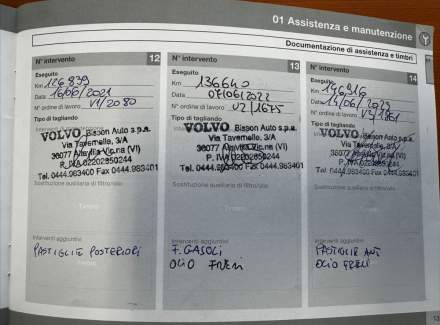 01 Assistenza e manutenzione
Documentazione di assistenza e timbri
N° intervento 12
Eseguito
Km 126839
Data 16/06/2021
N° ordine di lavoro V1/2080
Tipo di tagliando
VOLVO Bisson Auto s.p.a.
Via Tavernello, 3/A
36077 Altavilla Vic.na (VI)
P. IVA 02202850244
Tel. 0444.963400 Fax 0444.963401
Sostituzione ausiliaria di filtro/olio
Timbro
Interventi aggiuntivi
PASTIGLIE POSTERIORI
N° intervento 13
Eseguito
Km 136640
Data 07/06/2022
N° ordine di lavoro V2/1675
Tipo di tagliando
VOLVO Bisson Auto s.p.a.
Via Tavernello, 3/A
36077 Altavilla Vic.na (VI)
P. IVA 02202850244
Tel. 0444.963400 Fax 0444.963401
Sostituzione ausiliaria di filtro/olio
Interventi aggiuntivi
F. GASOLI
OLIO FRENI
N° intervento 14
Eseguito
Km 146916
Data
N° ordine di lavoro
Tipo di tagliando
VOLVO Bisson Auto s.p.a.
Via Tavernello, 3/A
36077 Altavilla Vic.na (VI)
P. IVA 02202850244
Tel. 0444.963400 Fax 0444.963401
Sostituzione ausiliaria di filtro/olio
Interventi aggiuntivi
PASTIGLIE ANT
OLIO FRENI